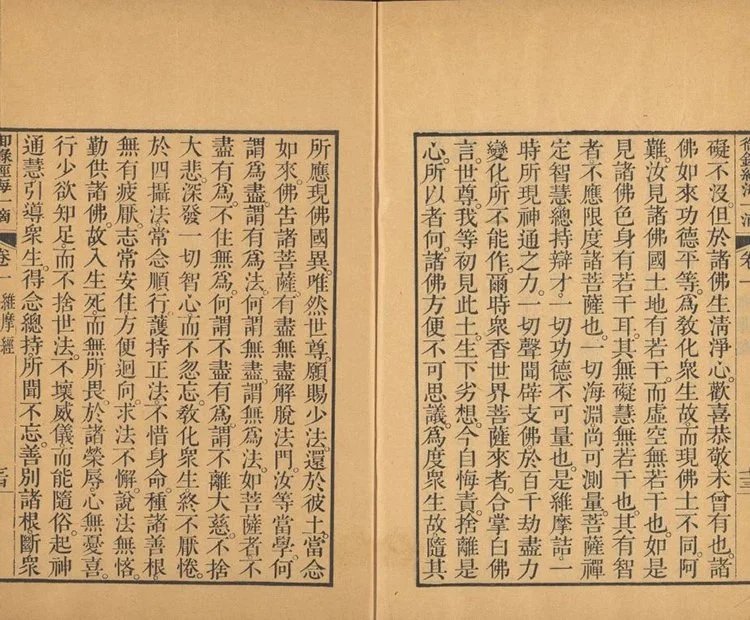 礙不沒。但於諸佛生淸淨心。歡喜恭敬未曾有也。諸
佛如來功德平等。爲敎化衆生故而現佛土不同。阿
難汝見諸佛國土地有若干。而虛空無若干也。如是
見諸佛色身有若干耳。其無礙慧無若干也。其有智
者不應限度諸菩薩也。一切海淵尚可測量。菩薩禪
定智慧總持辯才。一切功德不可量也。是維摩詰。一
時所現神通之力。一切聲聞辟支佛於百千劫盡力
變化所不能作。爾時衆香世界菩薩來者。合掌白佛
言。世尊。我等初見此土。生下劣想。今自悔責。捨離是
心。所以者何。諸佛方便不可思議。爲度衆生故隨其
所應現佛國異。唯然世尊。願賜少法。還於彼土。當念
如來。佛告諸菩薩。有盡無盡解脫法門。汝等當學。何
謂爲盡。謂有爲法。何謂無盡。謂無爲法。如菩薩者。不
盡有爲。不住無爲。何謂不盡有爲。謂不離大慈。不捨
大悲。深發一切智心而不忽忘。敎化衆生終不厭惓。
於四攝法常念順行。護持正法不惜身命。種諸善根
無有疲厭。志常安住方便迴向。求法不懈。說法無悋。
勤供諸佛。故入生死而無所畏。於諸榮辱心無憂喜。
行少欲知足而不捨世法。不壞威儀而能隨俗。起神
通慧引導衆生。得念總持所聞不忘。善別諸根斷衆
御錄經海一滴 卷一 維摩經